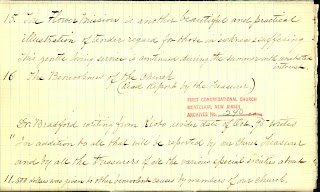 15. The Flower Mission is another beautiful and practical
illustration of tender regard for those in sickness & suffering
This gentle loving service is continued during the summer with unabated
interest.
16 The Benevolences of the Church
(Read Report by the Treasurer.)
FIRST CONGREGATIONAL CHURCH
MONTCLAIR, NEW JERSEY
ARCHIVES No. 240
Dr Bradford writing from Kioto under date of Oct. writes
"In addition to all that will be reported by our Church Treasurer
and by all the Treasurers of all the various special societies about
11,500 dollars were given to other benevolent causes by members of our church.